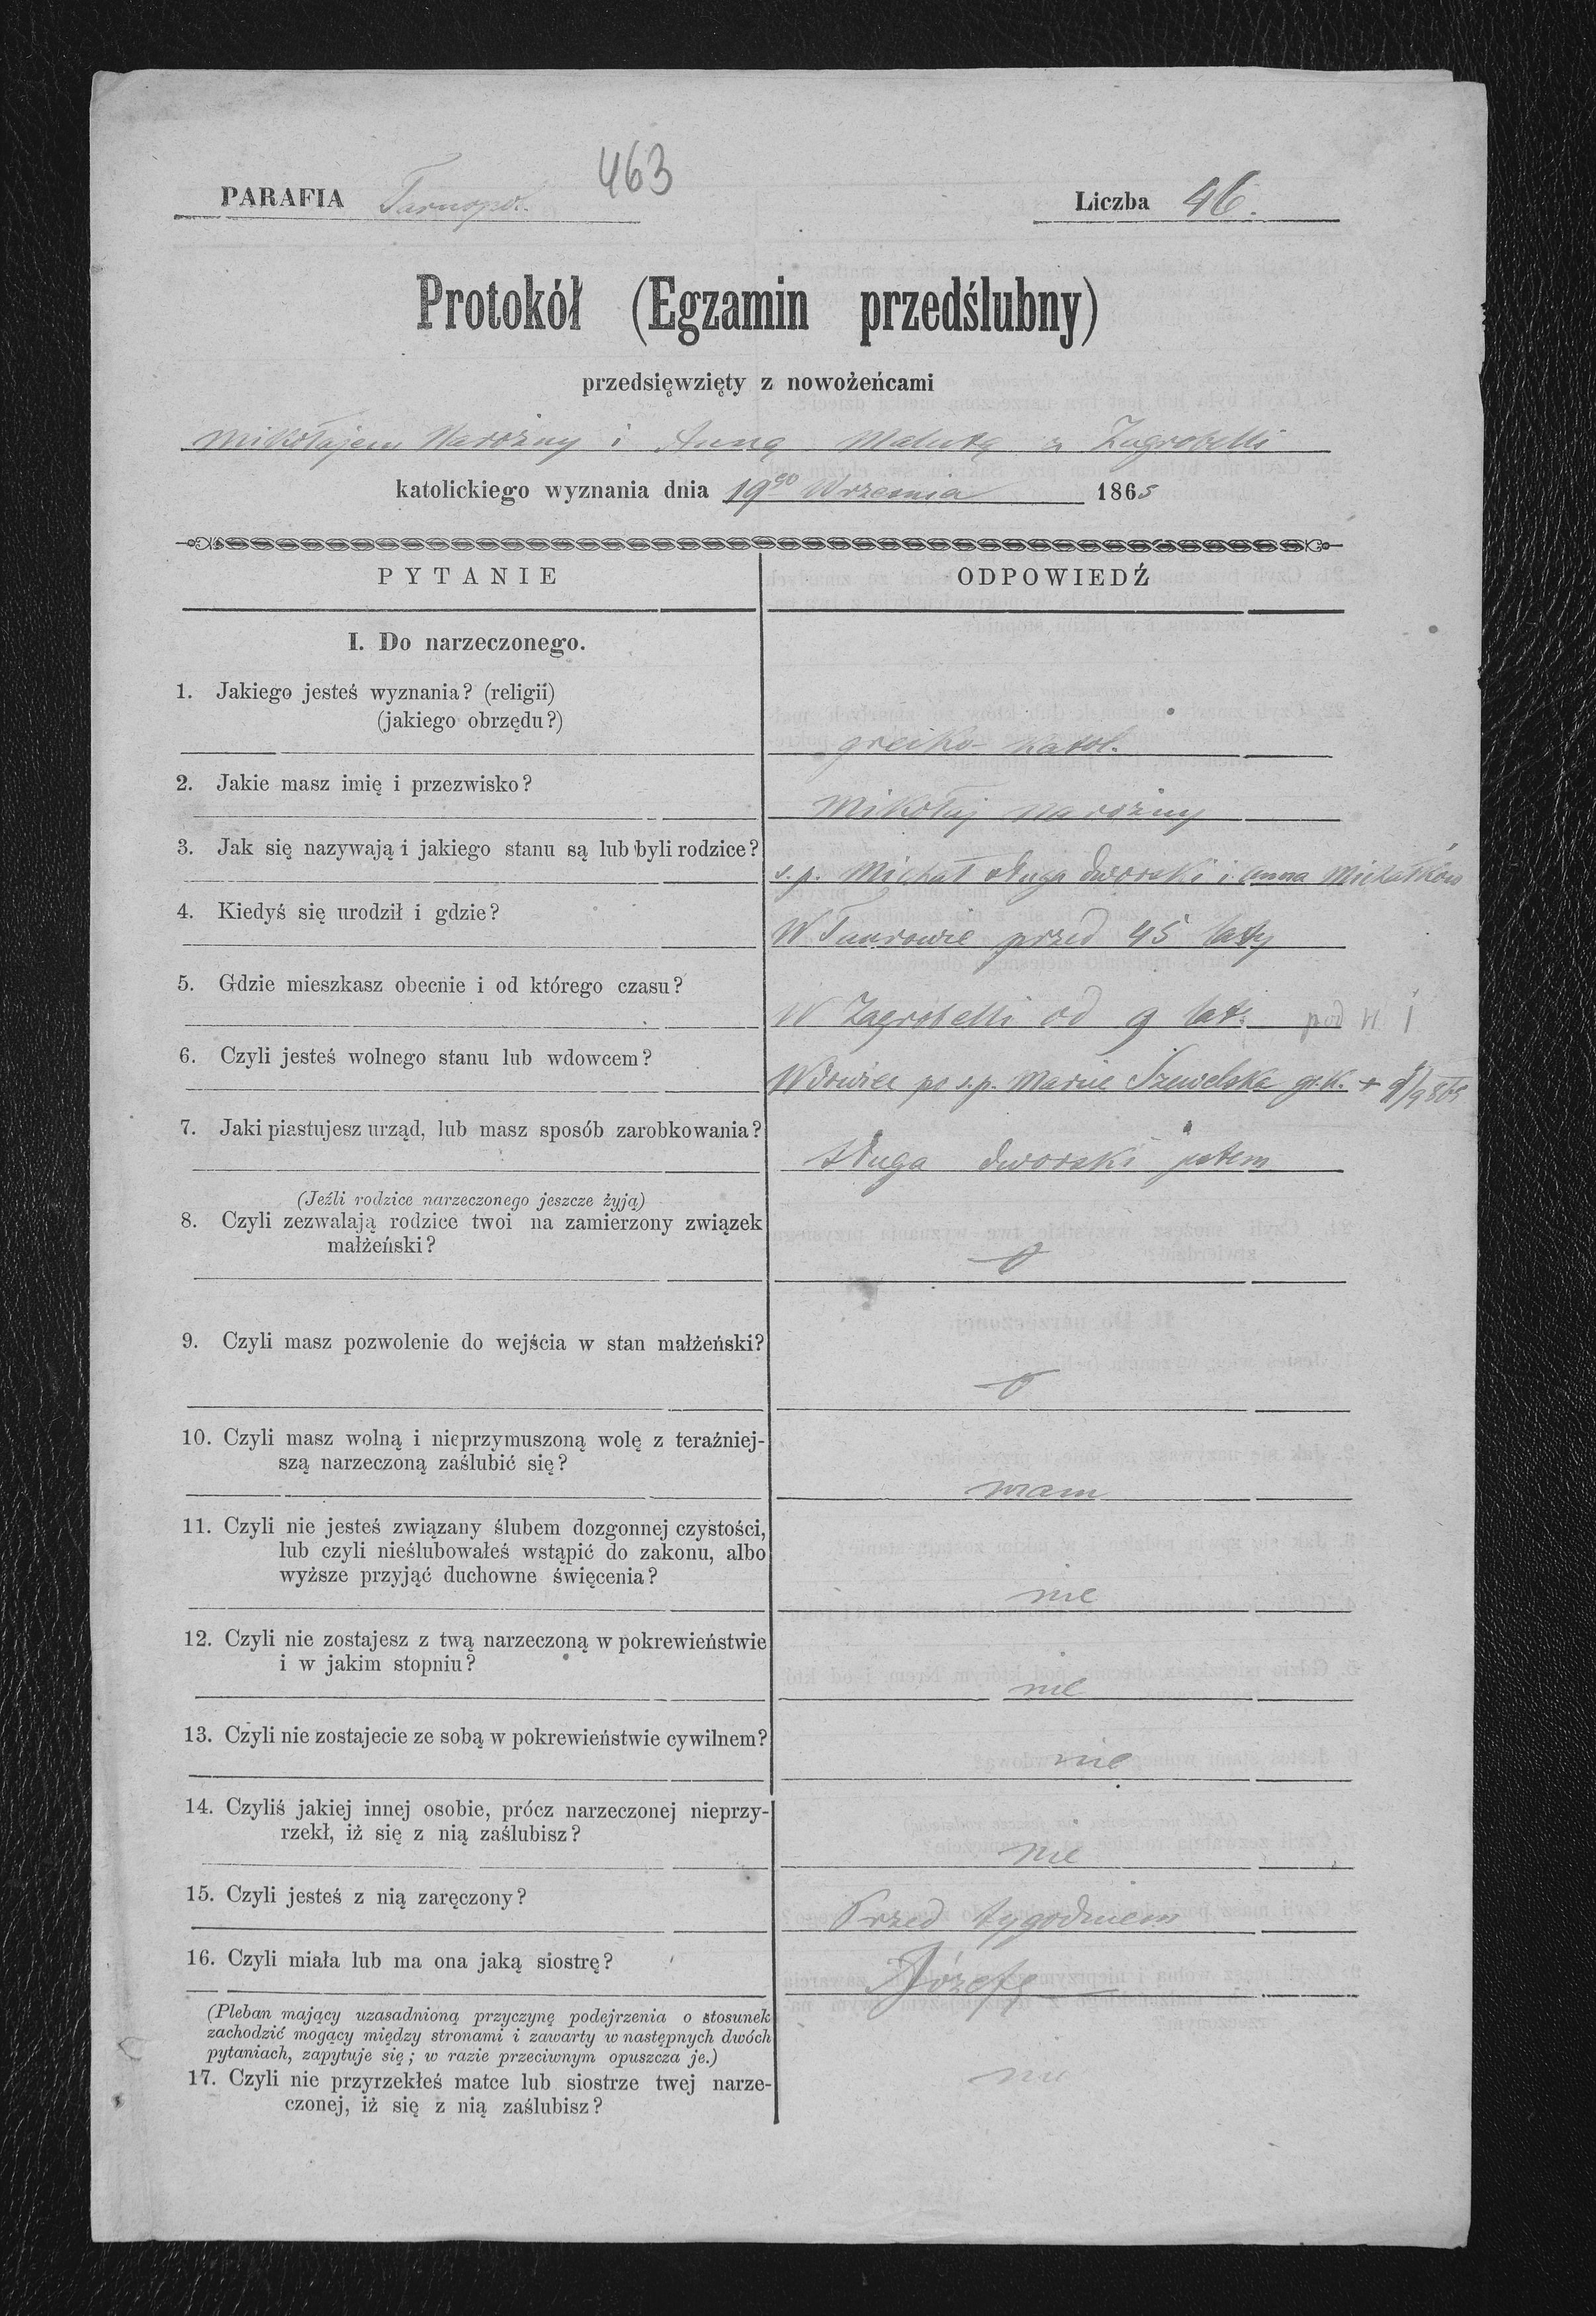 463
PARAFIA Tarnopol.
Liczba 46.
Protokół (Egzamin przedślubny)
przedsięwzięty z nowożeńcami
Mikołajem Narożny i Anną z Zagrobelli
katolickiego wyznania dnia 19go Wrzesnia 1865
PYTANIE
ODPOWIEDŹ
I. Do narzeczonego.
1. Jakiego jesteś wyznania? (religii)
(jakiego obrzędu?)
greiko-katol.
2. Jakie masz imię i przezwisko?
Mikołaj Narożny
3. Jak się nazywają i jakiego stanu są lub byli rodzice?
s.p. Michał sługa dworski i Anna Michałków
4. Kiedyś się urodził i gdzie?
W przed 45 laty
5. Gdzie mieszkasz obecnie i od którego czasu?
W Zagrobelli od 9 lat pod N 1
6. Czyli jesteś wolnego stanu lub wdowcem?
Wdowiec po s.p. Marie gr.k. +
7. Jaki piastujesz urząd, lub masz sposób zarobkowania?
sługa dworski jestem
(Jeźli rodzice narzeczonego jeszcze żyją)
8. Czyli zezwalają rodzice twoi na zamierzony związek
małżeński?
0
9. Czyli masz pozwolenie do wejścia w stan małżeński?
0
10. Czyli masz wolną i nieprzymuszoną wolę z teraźniej-
szą narzeczoną zaślubić się?
mam
11. Czyli nie jesteś związany ślubem dozgonnej czystości,
lub czyli nieślubowałeś wstąpić do zakonu, albo
wyższe przyjąć duchowne święcenia?
nie
12. Czyli nie zostajesz z twą narzeczoną w pokrewieństwie
i w jakim stopniu?
nie
13. Czyli nie zostajecie ze sobą w pokrewieństwie cywilnem?
nie
14. Czyliś jakiej innej osobie, prócz narzeczonej nieprzy-
rzekł, iż się z nią zaślubisz?
nie
15. Czyli jesteś z nią zaręczony?
Przed tygodniem
16. Czyli miała lub ma ona jaką siostrę?
Józefę
(Pleban mający uzasadnioną przyczynę podejrzenia o stosunek
zachodzić mogący między stronami i zawarty w następnych dwóch
pytaniach, zapytuje się; w razie przeciwnym opuszcza je.)
17. Czyli nie przyrzekłeś matce lub siostrze twej narze-
czonej, iż się z nią zaślubisz?
nie